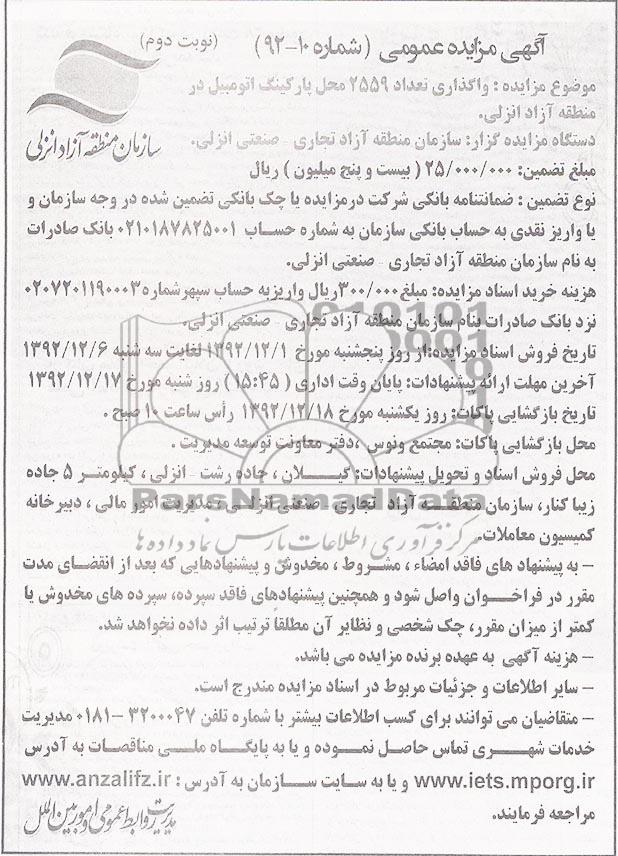 آگهی مزایده عمومی (شماره ۱۰-۹۲) (نوبت دوم)
موضوع مزایده : واگذاری تعداد ۲۵۵۹ محل پارکینگ اتومبیل در
منطقه آزاد انزلی.
سازمان منطقه آزاد انزلی
دستگاه مزایده گزار: سازمان منطقه آزاد تجاری - صنعتی انزلی.
مبلغ تضمین: ۲۵/۰۰۰/۰۰۰ ( بیست و پنج میلیون ) ریال
نوع تضمین : ضمانتنامه بانکی شرکت درمزایده یا چک بانکی تضمین شده در وجه سازمان و
یا واریز نقدی به حساب بانکی سازمان به شماره حساب ۰۲۱۰۱۸۷۸۲۵۰۰۱ بانک صادرات
به نام سازمان منطقه آزاد تجاری - صنعتی انزلی.
هزینه خرید اسناد مزایده: مبلغ ۳۰۰/۰۰۰ریال واریزبه حساب سپهرشماره ۰۲۰۷۲۰۱۱۹۰۰۰۳
نزد بانک صادرات بنام سازمان منطقه آزاد تجاری - صنعتی انزلی.
تاریخ فروش اسناد مزایده:از روز پنجشنبه مورخ ۱۳۹۲/۱۲/۱ لغایت سه شنبه ۱۳۹۲/۱۲/۶
آخرین مهلت ارائه پیشنهادات: پایان وقت اداری ( ۱۵:۴۵ ) روز شنبه مورخ ۱۳۹۲/۱۲/۱۷
تاریخ بازگشایی پاکات: روز یکشنبه مورخ ۱۳۹۲/۱۲/۱۸ رأس ساعت ۱۰ صبح .
محل بازگشایی پاکات: مجتمع ونوس ،دفتر معاونت توسعه مدیریت .
محل فروش اسناد و تحویل پیشنهادات: گیلان ، جاده رشت - انزلی ، کیلومتر ۵ جاده
زیبا کنار، سازمان منطقه آزاد تجاری - صنعتی انزلی ، مدیریت امور مالی ، دبیرخانه
ParsNamadData
کمیسیون معاملات.
مرکز فرآوری اطلاعات پارس نماد داده ها
– به پیشنهاد های فاقد امضاء ، مشروط ، مخدوش و پیشنهادهایی که بعد از انقضای مدت
مقرر در فراخوان واصل شود و همچنین پیشنهادهای فاقد سپرده، سپرده های مخدوش یا
کمتر از میزان مقرر، چک شخصی و نظایر آن مطلقاً ترتیب اثر داده نخواهد شد.
– هزینه آگهی به عهده برنده مزایده می باشد.
– سایر اطلاعات و جزئیات مربوط در اسناد مزایده مندرج است.
– متقاضیان می توانند برای کسب اطلاعات بیشتر با شماره تلفن ۳۲۰۰۰۴۷ –۰۱۸۱ مدیریت
خدمات شهری تماس حاصل نموده و یا به پایگاه ملی مناقصات به آدرس
www.iets.mporg.ir و یا به سایت سازمان به آدرس : www.anzalifz.ir
مراجعه فرمایند.
مدیریت روابط عمومی و امور بین الملل